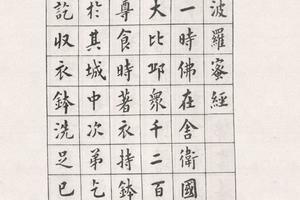 波羅蜜經
一時佛在舍衛國
大比邱衆千二百
尊食時著衣持鉢
於其城中次弟乞
訖収衣鉢洗足已